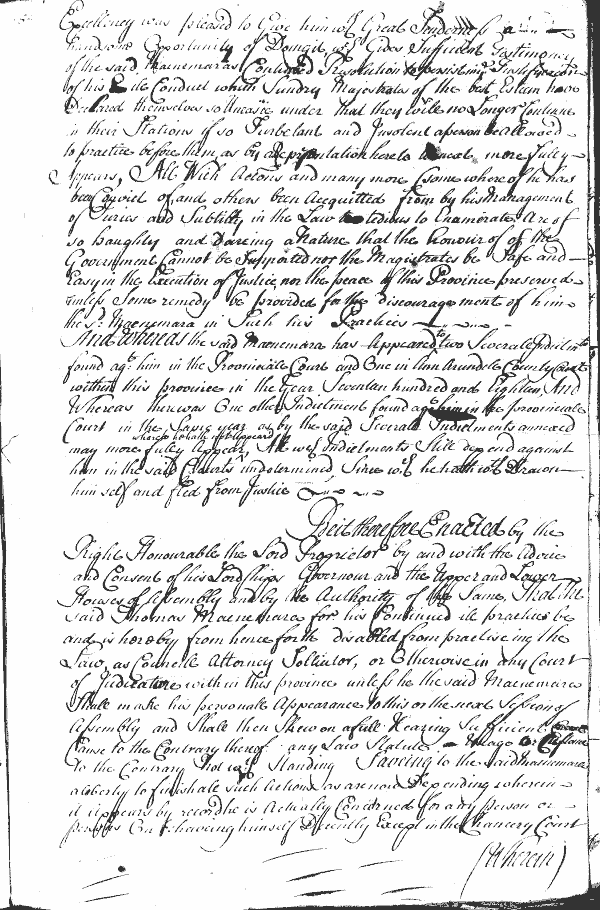 Excellency was pleased to Give him wth Great Tenderness a
handsome Opportunity of Doing it wch Gives Sufficient Testimony
of the said Macnemaras Continued Resolution to persist in
of his ile Conduct which Sundry Majestrates of the best Esteem have
Declared themselves so Uneasie under that they will no Longer Continue
in their Stations if so Turbelant and Insolent a person be allowed
to practice before them as by a Representation hereto annexed more fully
Appears, All Wch Actions and many more (some whereof he has
been Convict of and others been Accquitted from by his Management
of Juries and Subtilty in the Law too tedious to Enamorate Are of
so haughty and Dareing a Nature that the honour of of the
Government Cannot be Supported nor the Magistrates be Safe and
Easy in the Execution of Justice nor the peace of this Province preserved
unless Some remedy be provided for the discouragement of him
the sd Macnemara in Such his Practices
And whereas the said Macnemara has Appeared to two Severall Indictmts
found agt him in the Provinciall Court and One in Ann Arundele County Court
within this province in the year Seventen hundred and Eighten And
Whereas there was One other Indictment found agt him in the provinciale
Court in the Same year as by the said Severall Indictments annexed
whereto he hath not Appeared
may more fully Appear, All wch Indictments Still depend against
him in the said Courts undetermined, Since wch he hath wth Drawn
him self and fled from Justice
Be it therefore Enacted by the
Right Honourable the Lord Proprietor by and with the Advice
and Consent of his Lordships Governour and the Upper and Lower
Houses of Assembly and by the Authority of the Same, That the
said Thomas Macnemara for his Continued ile practices be
and is hereby from hence forth disabled from practice ing the
Law, as Councelle Attorney Soliciator, or Otherwise in any Court
of Judicature within this province unless he the said Macnemara
Shall make his personale Appearance to this or the next Session of
Assembly and Shall then Shew on a full Hearing Sufficient
Cause to the Contrary thereof any Law Statute Usage or Custome
to the Contrary Not wth Standing Saveing to the said Macnemara
a liberty to finish all Such Actions as are now Depending wherein
it appears by record he is Actually Concerned for any person or
persons On behaveing himself Decently Except in the Chancery Court
(Wherein)